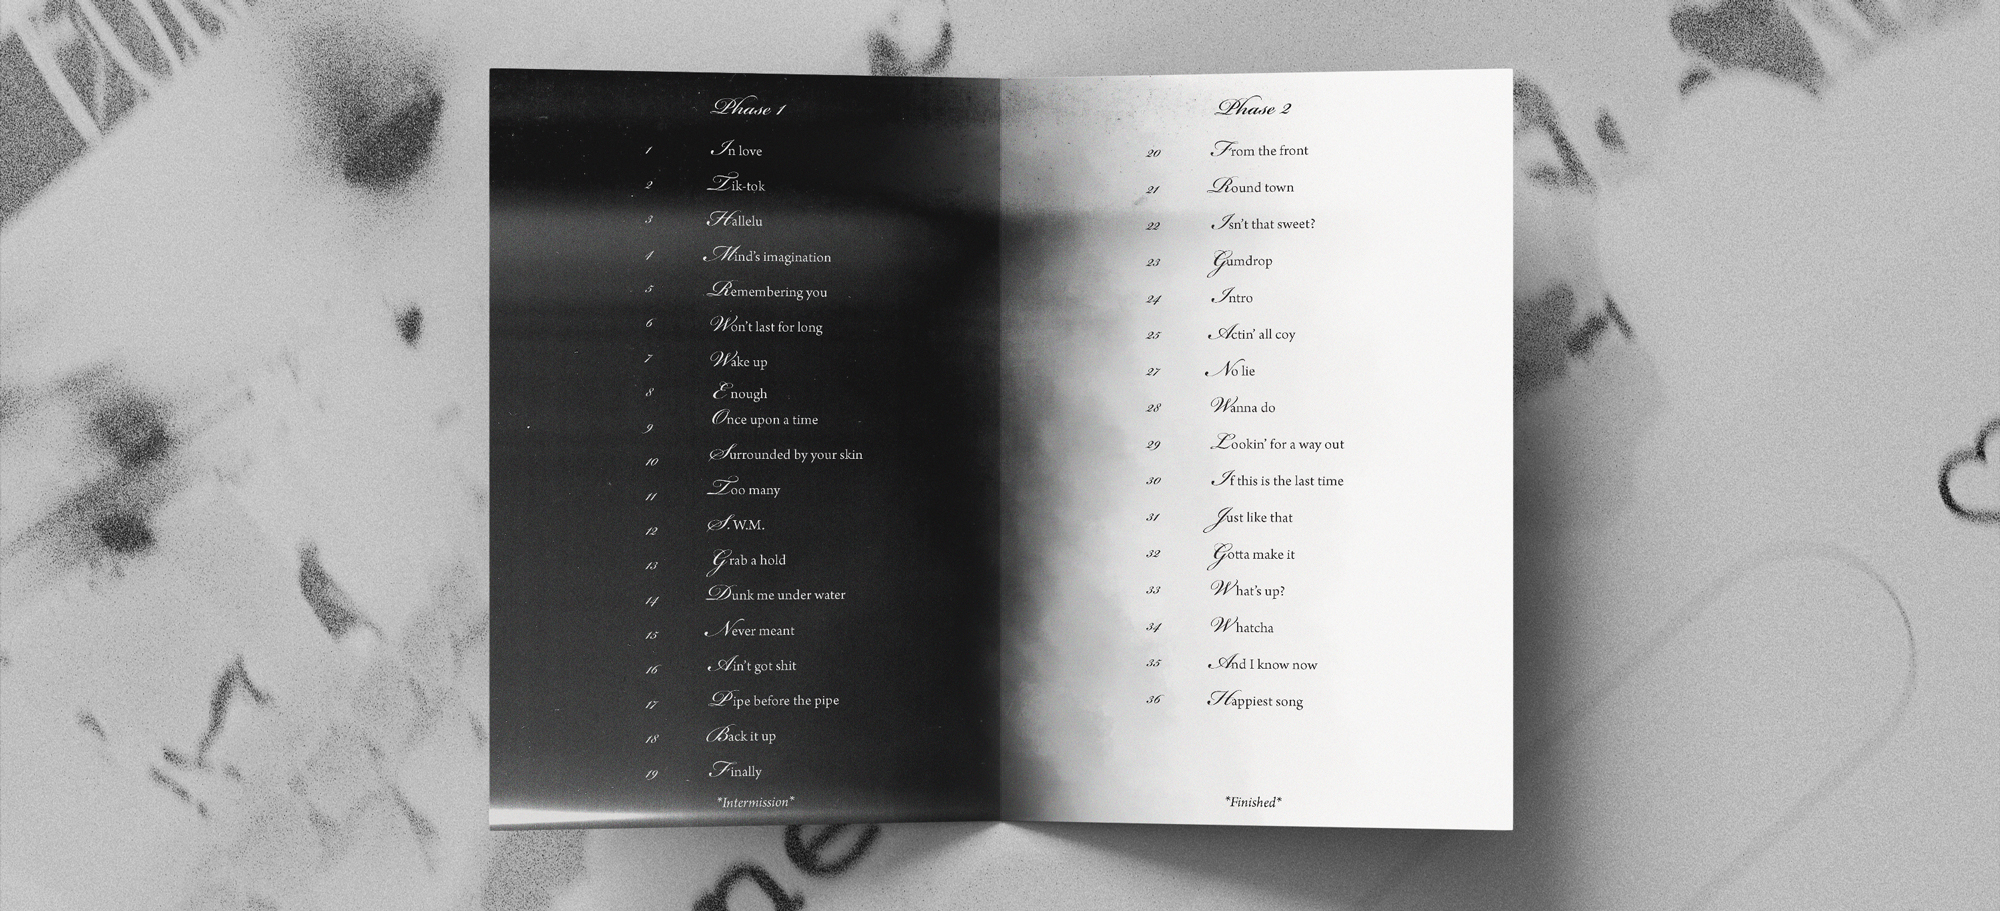 Phase 1
1 In love
2 Tik-tok
3 Hallelu
4 Mind's imagination
5 Remembering you
6 Won't last for long
7 Wake up
8 Enough
9 Once upon a time
10 Surrounded by your skin
11 Too many
12 S.W.M.
13 Grab a hold
14 Dunk me under water
15 Never meant
16 Ain't got shit
17 Pipe before the pipe
18 Back it up
19 Finally
*Intermission*
Phase 2
20 From the front
21 Round town
22 Isn't that sweet?
23 Gumdrop
24 Intro
25 Actin' all coy
27 No lie
28 Wanna do
29 Lookin' for a way out
30 If this is the last time
31 Just like that
32 Gotta make it
33 What's up?
34 Whatcha
35 And I know now
36 Happiest song
*Finished*
ne